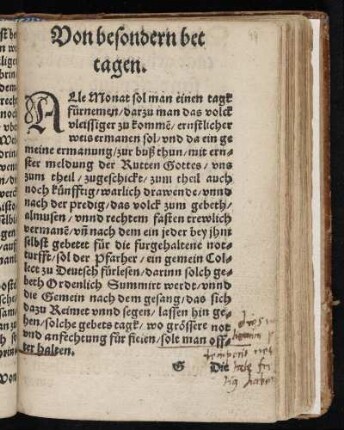 Von besondern bet
tagen.
ALle Monat sol man einen tagk
fürnemen/darzu man das volck
vleissiger zu kommē/ernstlicher
weis ermanen sol/vnd da ein ge
meine ermanung/zur buß thun/mit ern⸗
ster meldung der Rutten Gottes/vns
zum theil/zugeschickt/zum theil auch
noch künfftig/warlich drawende/vnnd
nach der predig/das volck zum gebeth/
almusen/vnnd rechtem fasten trewlich
vermanē/vñ nach dem ein jeder bey ihm
selbst gebetet für die furgehaltene not⸗
turfft/sol der Pfarher/ein gemein Col⸗
lect zu Deutsch fürlesen/darinn solch ge⸗
beth Ordenlich Summirt werde/vnnd
die Gemein nach dem gesang/das sich
dazu Reimet vnnd segen/lassen hin ge⸗
hen/solche gebets tagk/wo grössere not
vnd anfechtung für fielen/sole man off⸗
ter halten.
G Die